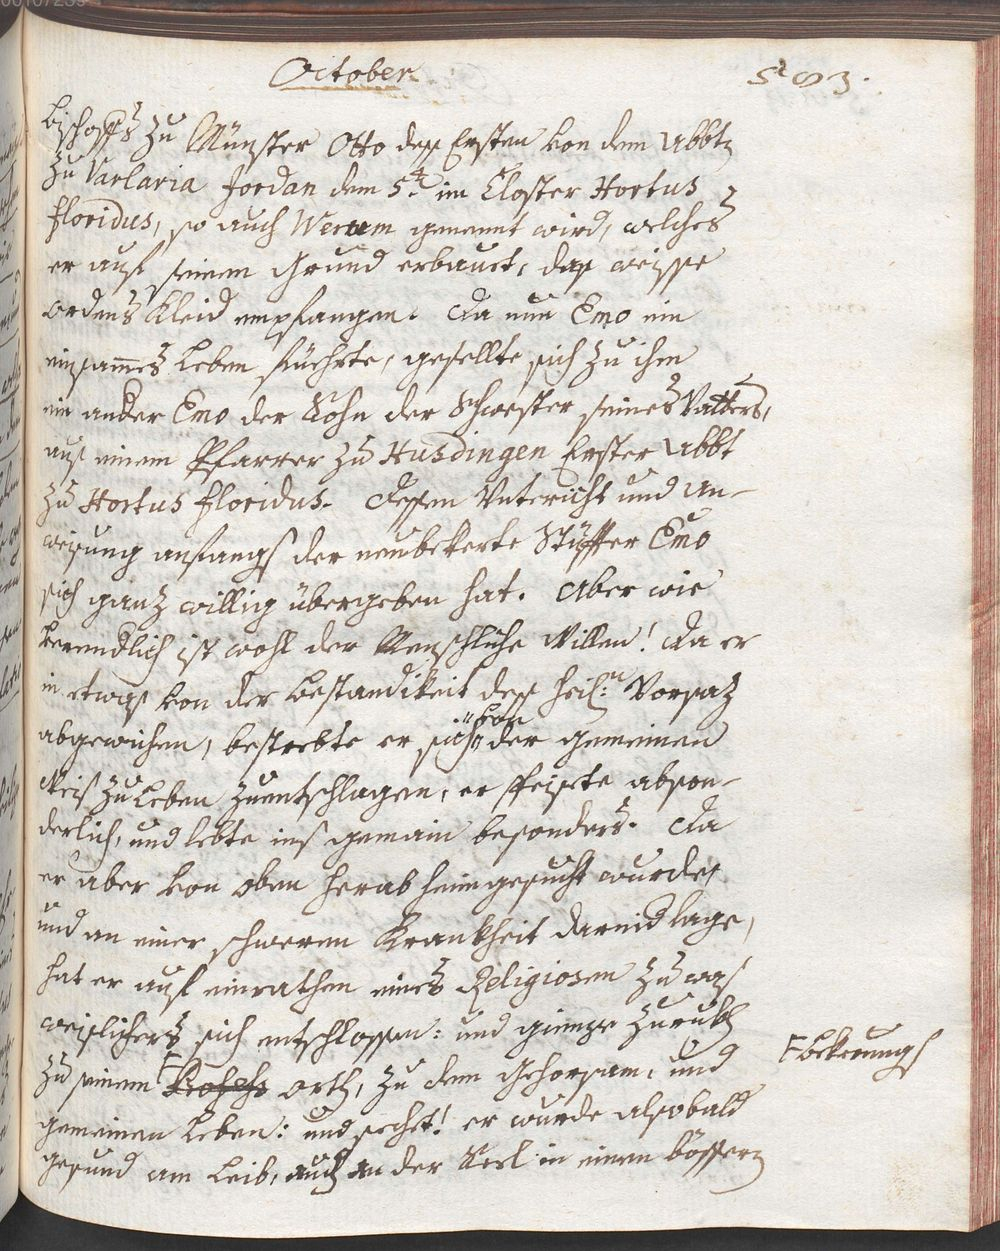 October
5 et 3.
Bischoffs zu Münster Otto deß Ersten von dem Abbtn
zu Varlaria Jordan dem 5.t im Closter Hortus
floridus, so auch Werum genennt wird, welches
er auf seinem Grund erbauet, das weisse
ordens Kleid empfangen. Da nun Emo ein
einsammes Leben führte, gesellte sich zu ihm
ein ander Emo der Sohn der Schwester seines Vatters,
aus einem Pfarrer zu Husdingen Erster Abbt
zu Hortus floridus. Dessen Untericht und An-
weisung anfangs der neubekerte Stiffter Emo
sich ganz willig übergeben hat. Aber wie
verendlich ist wohl der Menschliche Willen! Da er
in etwas von der bestandikeit deß heil:n Vorsaz
abgewichen, bestrebte er sich von der gemeinen
Weis zu Leben zuentschlagen, er speiste abson-
derlich, und lebte ins gemain besonders. Da
er aber von oben herab heimgesucht wurde,
und an einer schweren Krankheit darnidlage,
hat er auf einrathen eines Religiosen zu was
weislichers sich entschlossen: und gienge zuruckh
zu seinem orth, zu dem Gehorsam, und
Bekerungs
gemeinen Leben: und sechet! er wurde alsobald
gesund am Leib, auch an der Seel in einen bössern